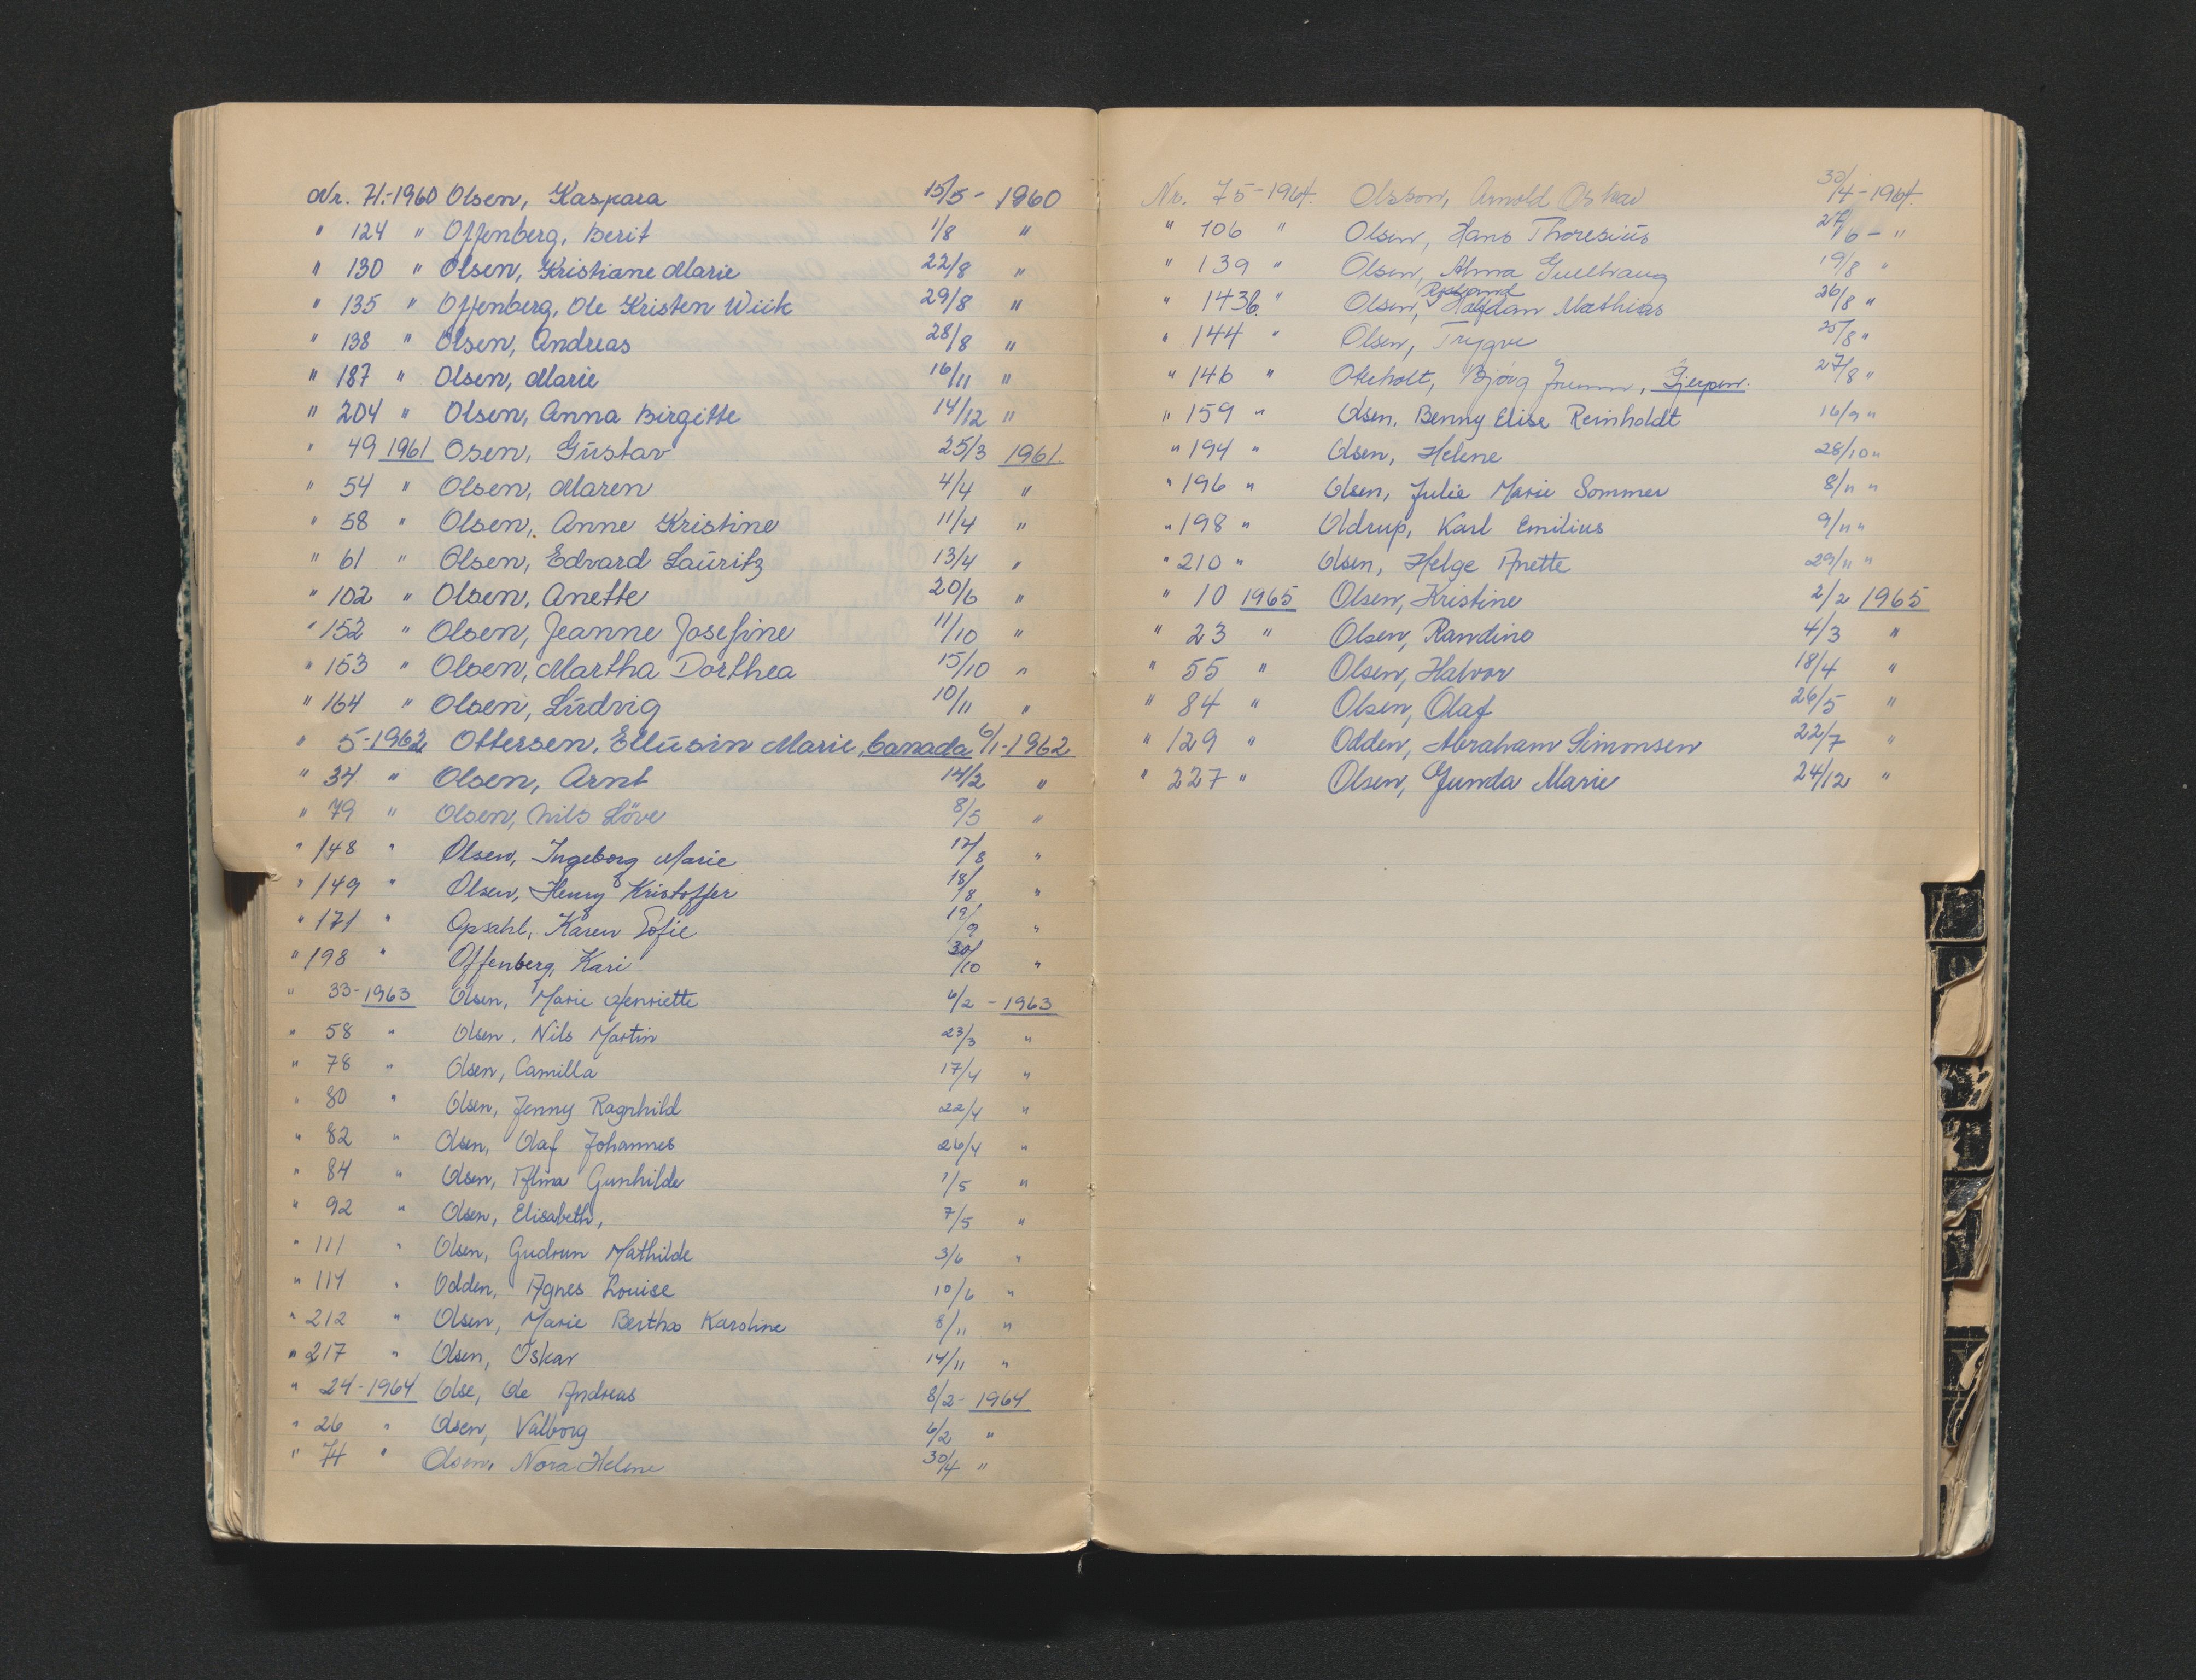 Nr. 71.-1960 Olsen, Kaspara 15/5 - 1960
" 124 " Offenberg, Berit 1/8 "
" 130 " Olsen, Kristiane Marie 22/8 "
" 135 " Offenberg, Ole Kristen Wiik 29/8 "
" 138 " Olsen, Andreas 28/8 "
" 187 " Olsen, Marie 16/11 "
" 204 " Olsen, Anna Birgitte 14/12 "
" 49 1961 Osen, Gustav 25/3 1961
" 54 " Olsen, Maren 4/4 "
" 58 " Olsen, Anne Kristine 11/4 "
" 61 " Olsen, Edvard Lauritz 13/4 "
" 102 " Olsen, Anette 20/6 "
" 152 " Olsen, Jeanne Josefine 11/10 "
" 153 " Olsen, Martha Dorthea 15/10 "
" 164 " Olsen, Ludvig 10/11 "
" 5-1962 Ottersen, Ellusin Marie, Canada 6/1-1962
" 34 " Olsen, Arnt 14/2 "
" 79 " Olsen, Nils Löve 8/5 "
" 148 " Olsen, Ingeborg Marie 17/8 "
" 149 " Olsen, Henry Kristoffer 18/8 "
" 171 " Opsahl, Karen Sofie 19/9 "
" 198 " Offenberg, Kari 30/10 "
" 33-1963 Olsen, Marie Henriette 6/2 - 1963
" 58 " Olsen, Nils Martin 23/3 "
" 78 " Olsen, Camilla 17/4 "
" 80 " Olsen, Jenny Ragnhild 22/4 "
" 82 " Olsen, Olaf Johannes 26/4 "
" 84 " Olsen, Alma Gunhilde 1/5 "
" 92 " Olsen, Elisabeth, 7/5 "
" 111 " Olsen, Gudrun Mathilde 3/6 "
" 114 " Odden, Agnes Louise 10/6 "
" 212 " Olsen, Marie Bertha Karoline 8/11 "
" 217 " Olsen, Oskar 14/11 "
" 24-1964 Olse, Ole Andreas 8/2 - 1964
" 26 " Olsen, Valborg 6/2 "
" 74 " Olsen, Nora Helene 30/4 "
Nr. 75-1964. Olsson, Arnold Oskar 30/4-1964.
" 106 " Olsen, Hans Thoresius 27/6 - "
" 139 " Olsen, Alma Gullhaug 19/8 "
" 143b. " Olsen, Halfdan Mathias 26/8 "
" 144 " Olsen, Trygve 25/8 "
" 146 " Otterholt, Bjørg Jrumm, Gjerpen. 27/8 "
" 159 " Olsen, Benny Elise Reinholdt 16/9 "
" 194 " Olsen, Helene 28/10 "
" 196 " Olsen, Julie Marie Sommer 8/11 "
" 198 " Oldrup, Karl Emilius 9/11 "
" 210 " Olsen, Helge Anette 29/11 "
" 10 1965 Olsen, Kristine 2/2 1965
" 23 " Olsen, Randine 4/3 "
" 55 " Olsen, Halvor 18/4 "
" 84 " Olsen, Olaf 26/5 "
" 129 " Odden, Abraham Simonsen 22/7 "
" 227 " Olsen, Gunda Marie 24/12 "